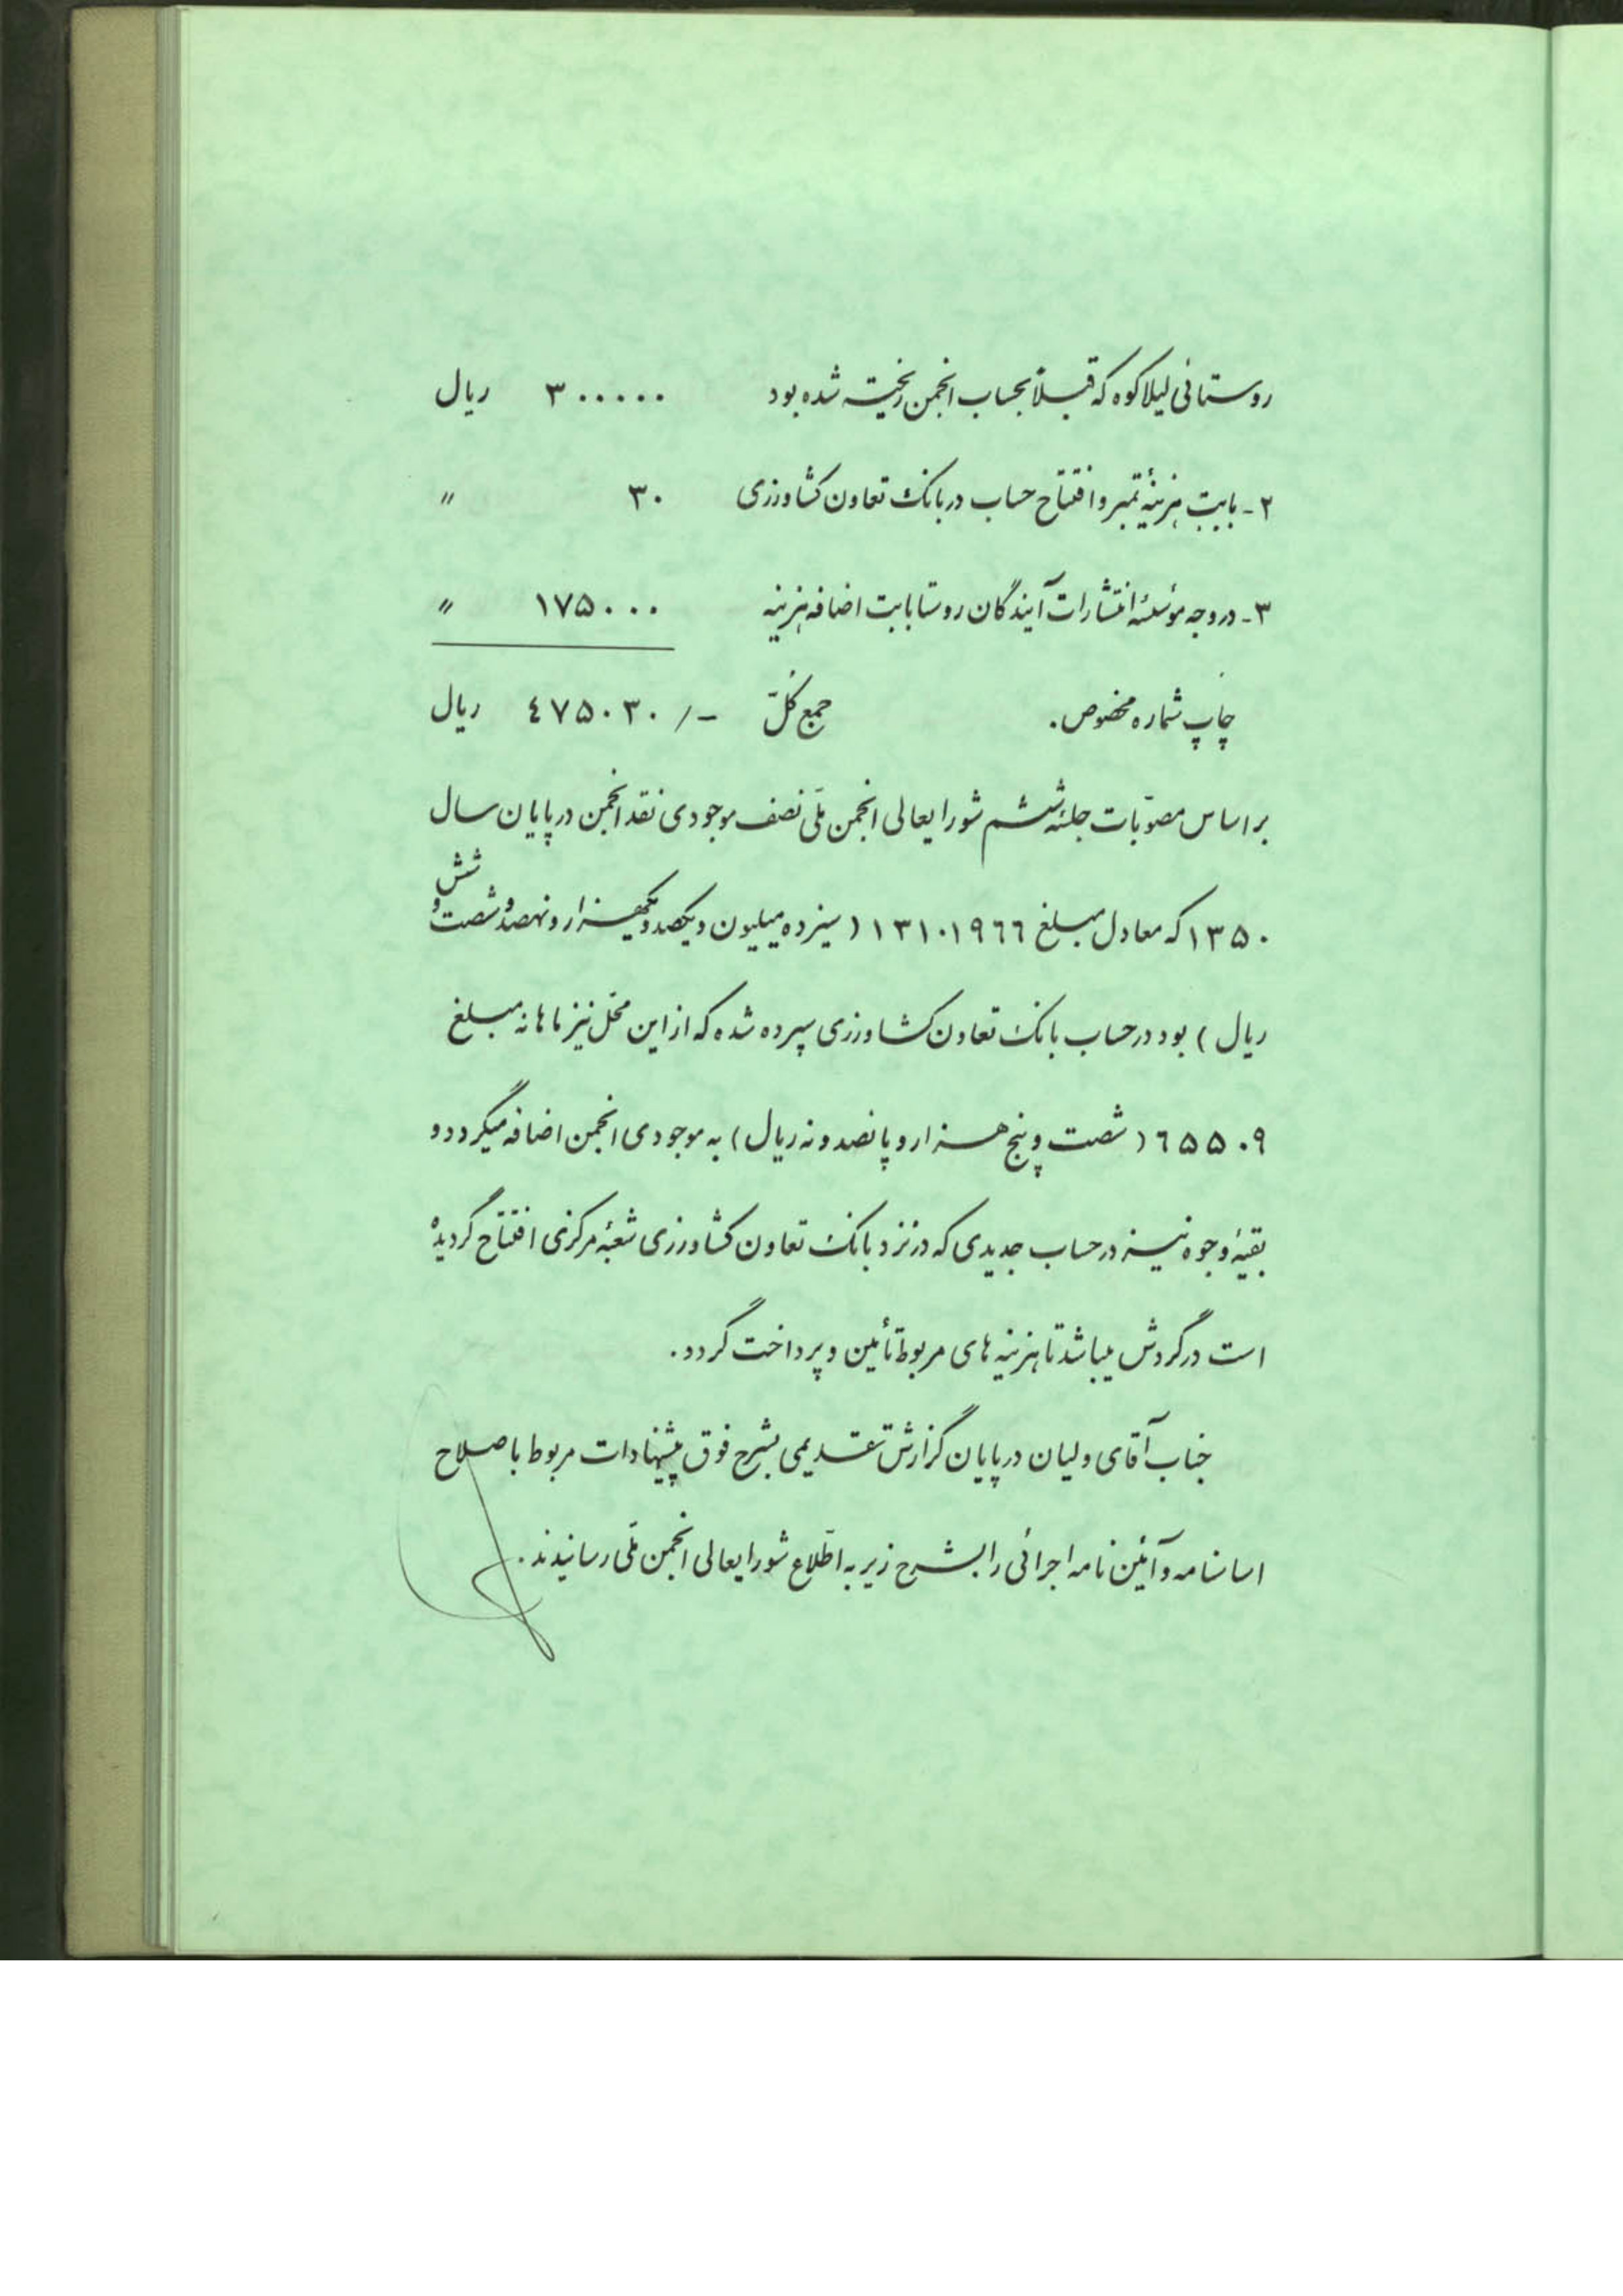 روستائی لیلاکوه که قبلاً بحساب انجمن ریخته شده بود ۳۰۰۰۰۰ ریال
۲- بابت هزینهٔ تمبر و افتتاح حساب در بانک تعاون کشاورزی ۳۰ "
۳- در وجه مؤسسهٔ انتشارات آیندگان روستا بابت اضافه هزینه ۱۷۵۰۰۰ "
چاپ شماره مخصوص. جمع کلّ ۴۷۵۰۳۰/- ریال
بر اساس مصوّبات جلسهٔ ششم شورایعالی انجمن ملّی نصف موجودی نقد انجمن در پایان سال
۱۳۵۰ که معادل مبلغ ۱۳۱۰۱۹۶۶ ( سیزده میلیون و یکصد و یکهزار و نهصد و شصت و شش
ریال ) بود در حساب بانک تعاون کشاورزی سپرده شده که از این محّل نیز ماهانه مبلغ
۶۵۵۰۹ ( شصت و پنج هزار و پانصد و نه ریال ) به موجودی انجمن اضافه میگردد و
بقیهٔ وجوه نیز در حساب جدیدی که در نزد بانک تعاون کشاورزی شعبهٔ مرکزی افتتاح گردیده
است در گردش میباشد تا هزینه های مربوط تأمین و پرداخت گردد.
جناب آقای ولیان در پایان گزارش تقدیمی بشرح فوق پیشنهادات مربوط باصلاح
اساسنامه و آئین نامه اجرائی را بشرح زیر به اطّلاع شورایعالی انجمن ملّی رسانیدند.